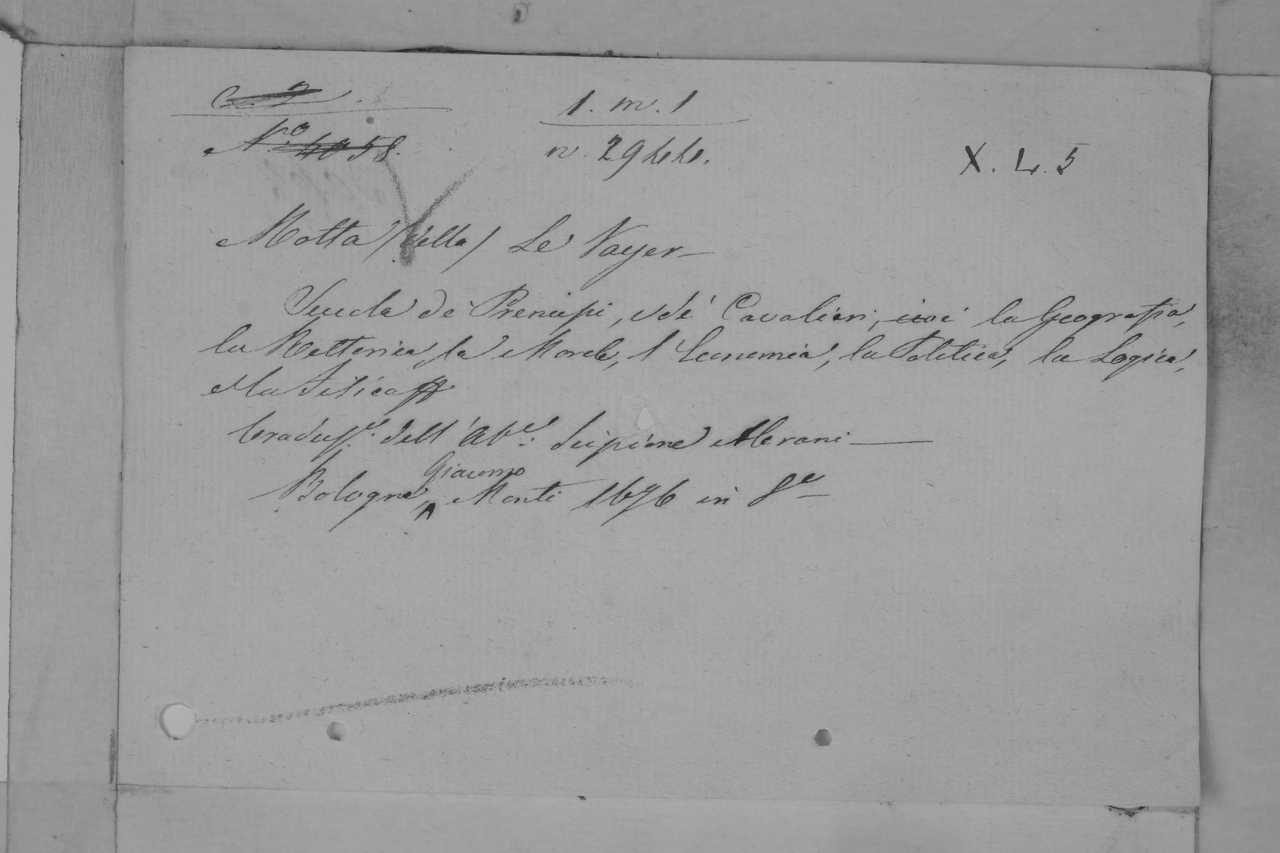 1. m. 1
N.º 4058.
n. 2944.
X. L. 5
Motta (della) Le Vayer
Scuola de Prencipi, e dé Cavalieri, cioé la Geografia,
la Rettorica, la Morale, l'Economia, la Politica, la Logica,
e la Fisica
Traduzᵉ. dell' Abᵉ. Scipione Alerani
Giacomo
Bologna, Monti 1676 in 8º